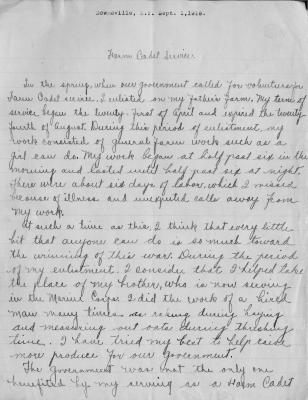 Downsville, N.Y. Sept. 1, 1918.
Farm Cadet Service
In the spring, when our government called for volunteers for
Farm Cadet service. I enlisted, on my father's farm. My term of
service began the twenty-first of April and expired the twenty
fourth of August. During this period of enlistment, my
work consisted of general farm work such as a
girl can do. My work began at half past six in the
morning and lasted until half past six at night.
There were about six days of labor, which I missed
because of illness and unexpected calls away from
my work.
At such a time as this, I think that every little
bit that anyone can do is so much toward
the winning of this war. During the period
of my enlistment, I consider that I helped take
the place of my brother, who is now serving
in the Marine Corps. I did the work of a hired
man many times in raking during haying
and measuring out oats during threshing
time. I have tried my best to help raise
more produce for our government.
The government was not the only one
benefited by my serving as a Farm Cadet